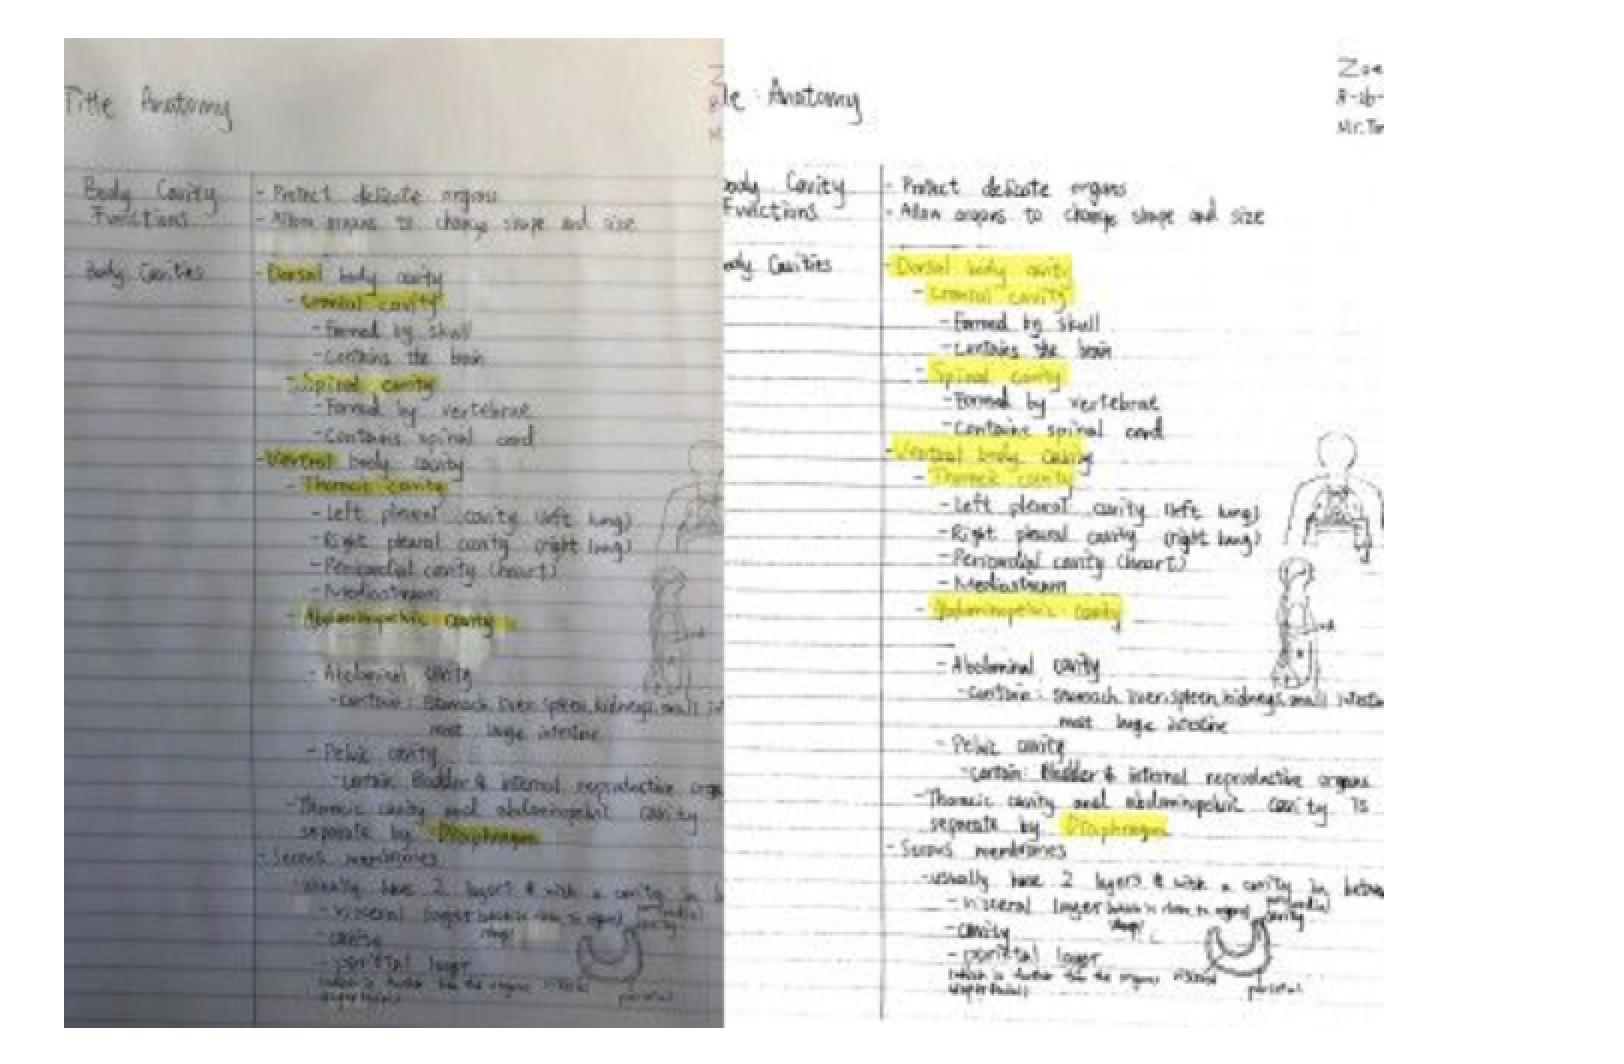 Title Anatomy
Body Cavity Functions
- Protect delicate organs
- Allow organs to change shape and size
Body Cavities
- Dorsal body cavity
- Cranial cavity
- Formed by skull
- Contains the brain
- Spinal cavity
- Formed by vertebrae
- Contains spinal cord
- Ventral body cavity
- Thoracic cavity
- Left pleural cavity (left lung)
- Right pleural cavity (right lung)
- Pericardial cavity (heart)
- Mediastinum
- Abdominopelvic cavity
- Abdominal cavity
- contain: stomach, liver, spleen, kidneys, small
most large intestine
- Pelvic cavity
- contain: Bladder & internal reproductive
- Thoracic cavity and abdominopelvic cavity
separate by Diaphragm
- Serous membranes
- usually have 2 layers & with a cavity in
- visceral layer
- cavity
- parietal layer
parietal
le: Anatomy
Zoe
Mr.
Body Cavity Functions
- Protect delicate organs
- Allow organs to change shape and size
Body Cavities
- Dorsal body cavity
- Cranial cavity
- Formed by skull
- Contains the brain
- Spinal cavity
- Formed by vertebrae
- Contains spinal cord
- Ventral body cavity
- Thoracic cavity
- Left pleural cavity (left lung)
- Right pleural cavity (right lung)
- Pericardial cavity (heart)
- Mediastinum
- Abdominopelvic cavity
- Abdominal cavity
- contain: stomach, liver, spleen, kidneys, small
most large intestine
- Pelvic cavity
- contain: Bladder & internal reproductive organs
- Thoracic cavity and abdominopelvic cavity is
separate by Diaphragm
- Serous membranes
- usually have 2 layers & with a cavity in
- visceral layer
- cavity
- parietal layer
parietal